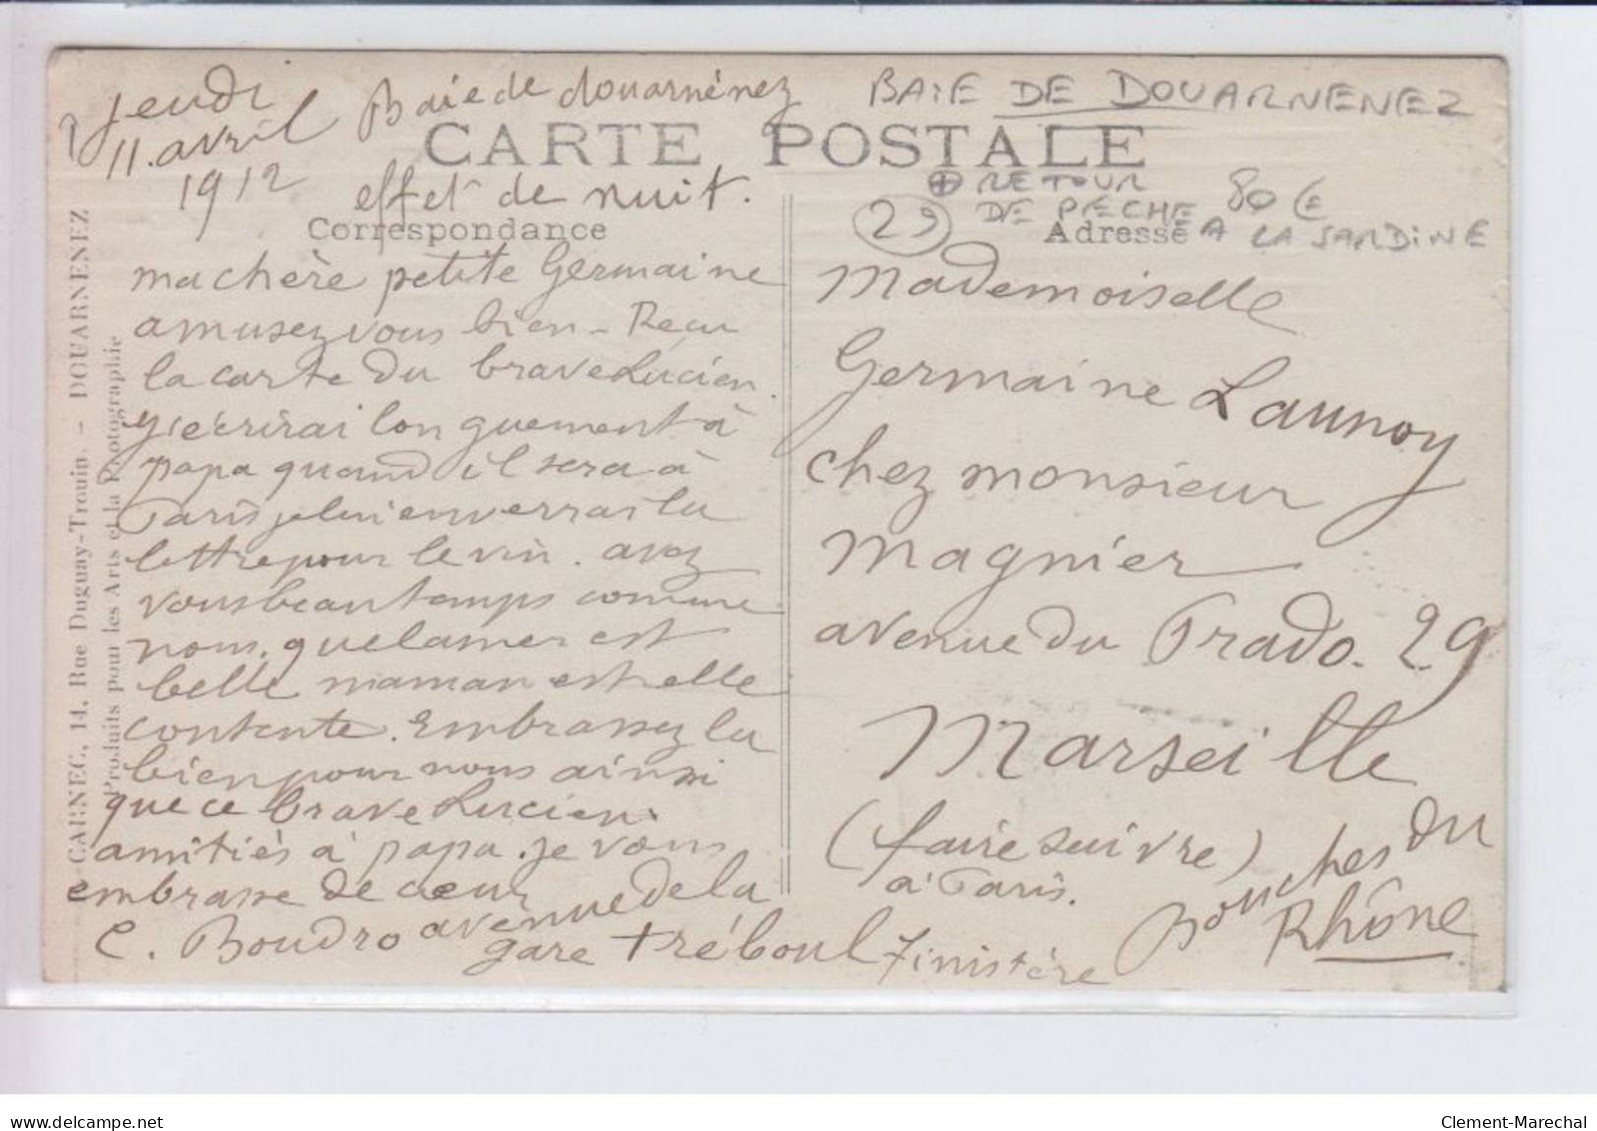 Jeudi
11. avril
1912
Baie de douarnénez
effet de nuit.
BAIE DE DOUARNENEZ
CARTE POSTALE
⊕ RETOUR
DE PÈCHE A LA SARDINE
29
80 €
Correspondance
Adresse
ma chère petite Germaine
amusez vous bien - Reçu
la carte du brave Lucien.
j'écrirai longuement à
papa quand il sera à
Paris je lui enverrai la
lettre pour le vin. avez
vous beau temps comme
nous. que la mer est
belle maman est elle
contente. Embrassez la
bien pour nous ainsi
que ce brave Lucien.
amitiés à papa. je vous
embrasse de cœur
C. Boudro avenue de la
gare tréboul Finistère
Mademoiselle
Germaine Launoy
chez monsieur
Magnier
avenue du Prado. 29
Marseille
(faire suivre)
à Paris.
Bouches du
Rhône
CARNEC, 14, Rue Duguay-Trouin. - DOUARNENEZ
Produits pour les Arts et la Photographie
Clement-Marechal